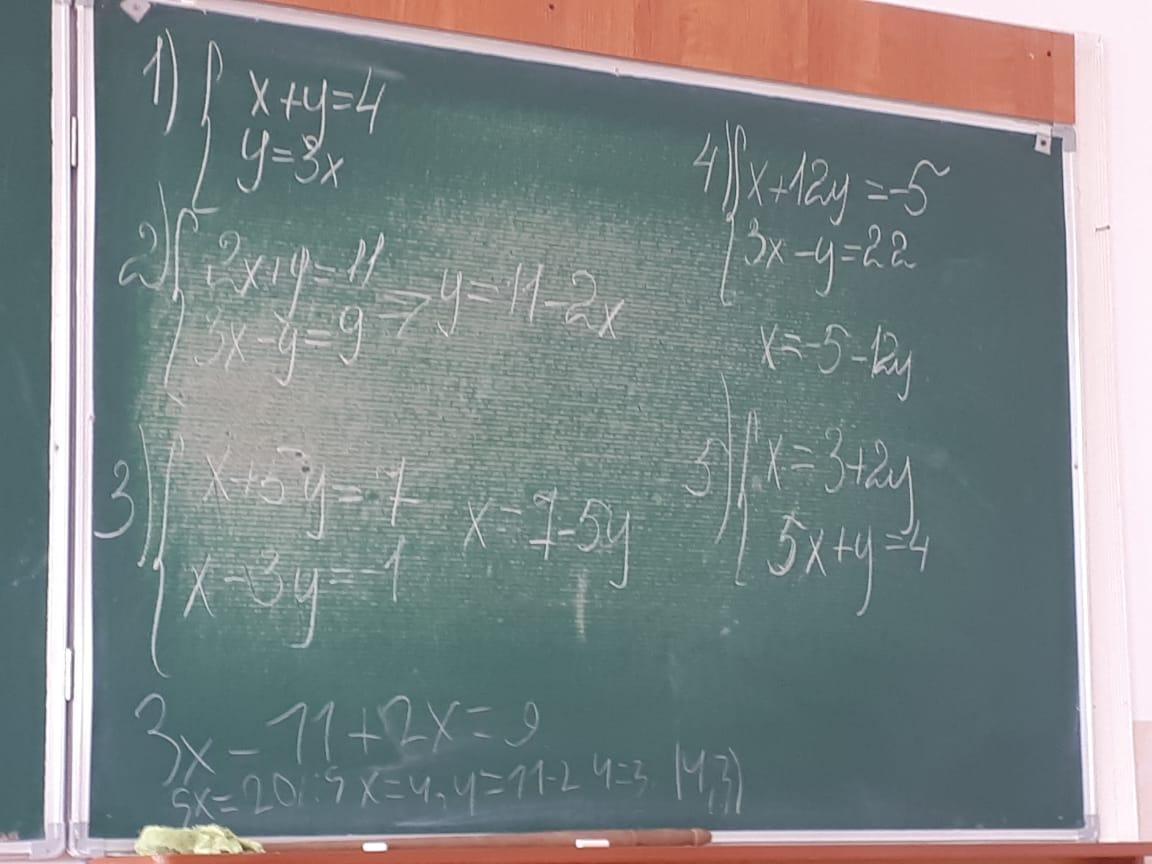 1) { x+y=4
y=3x
2) { 2x+y=11
3x-y=9 => y=11-2x
3) { x+5y=7
x-3y=-1
x=7-5y
4) { x+12y=-5
3x-y=22
x=-5-12y
5) { x=3+2y
5x+y=4
3x-11+2x=9
5x=20/:5 x=4, y=11-2·4=3 (4,3)